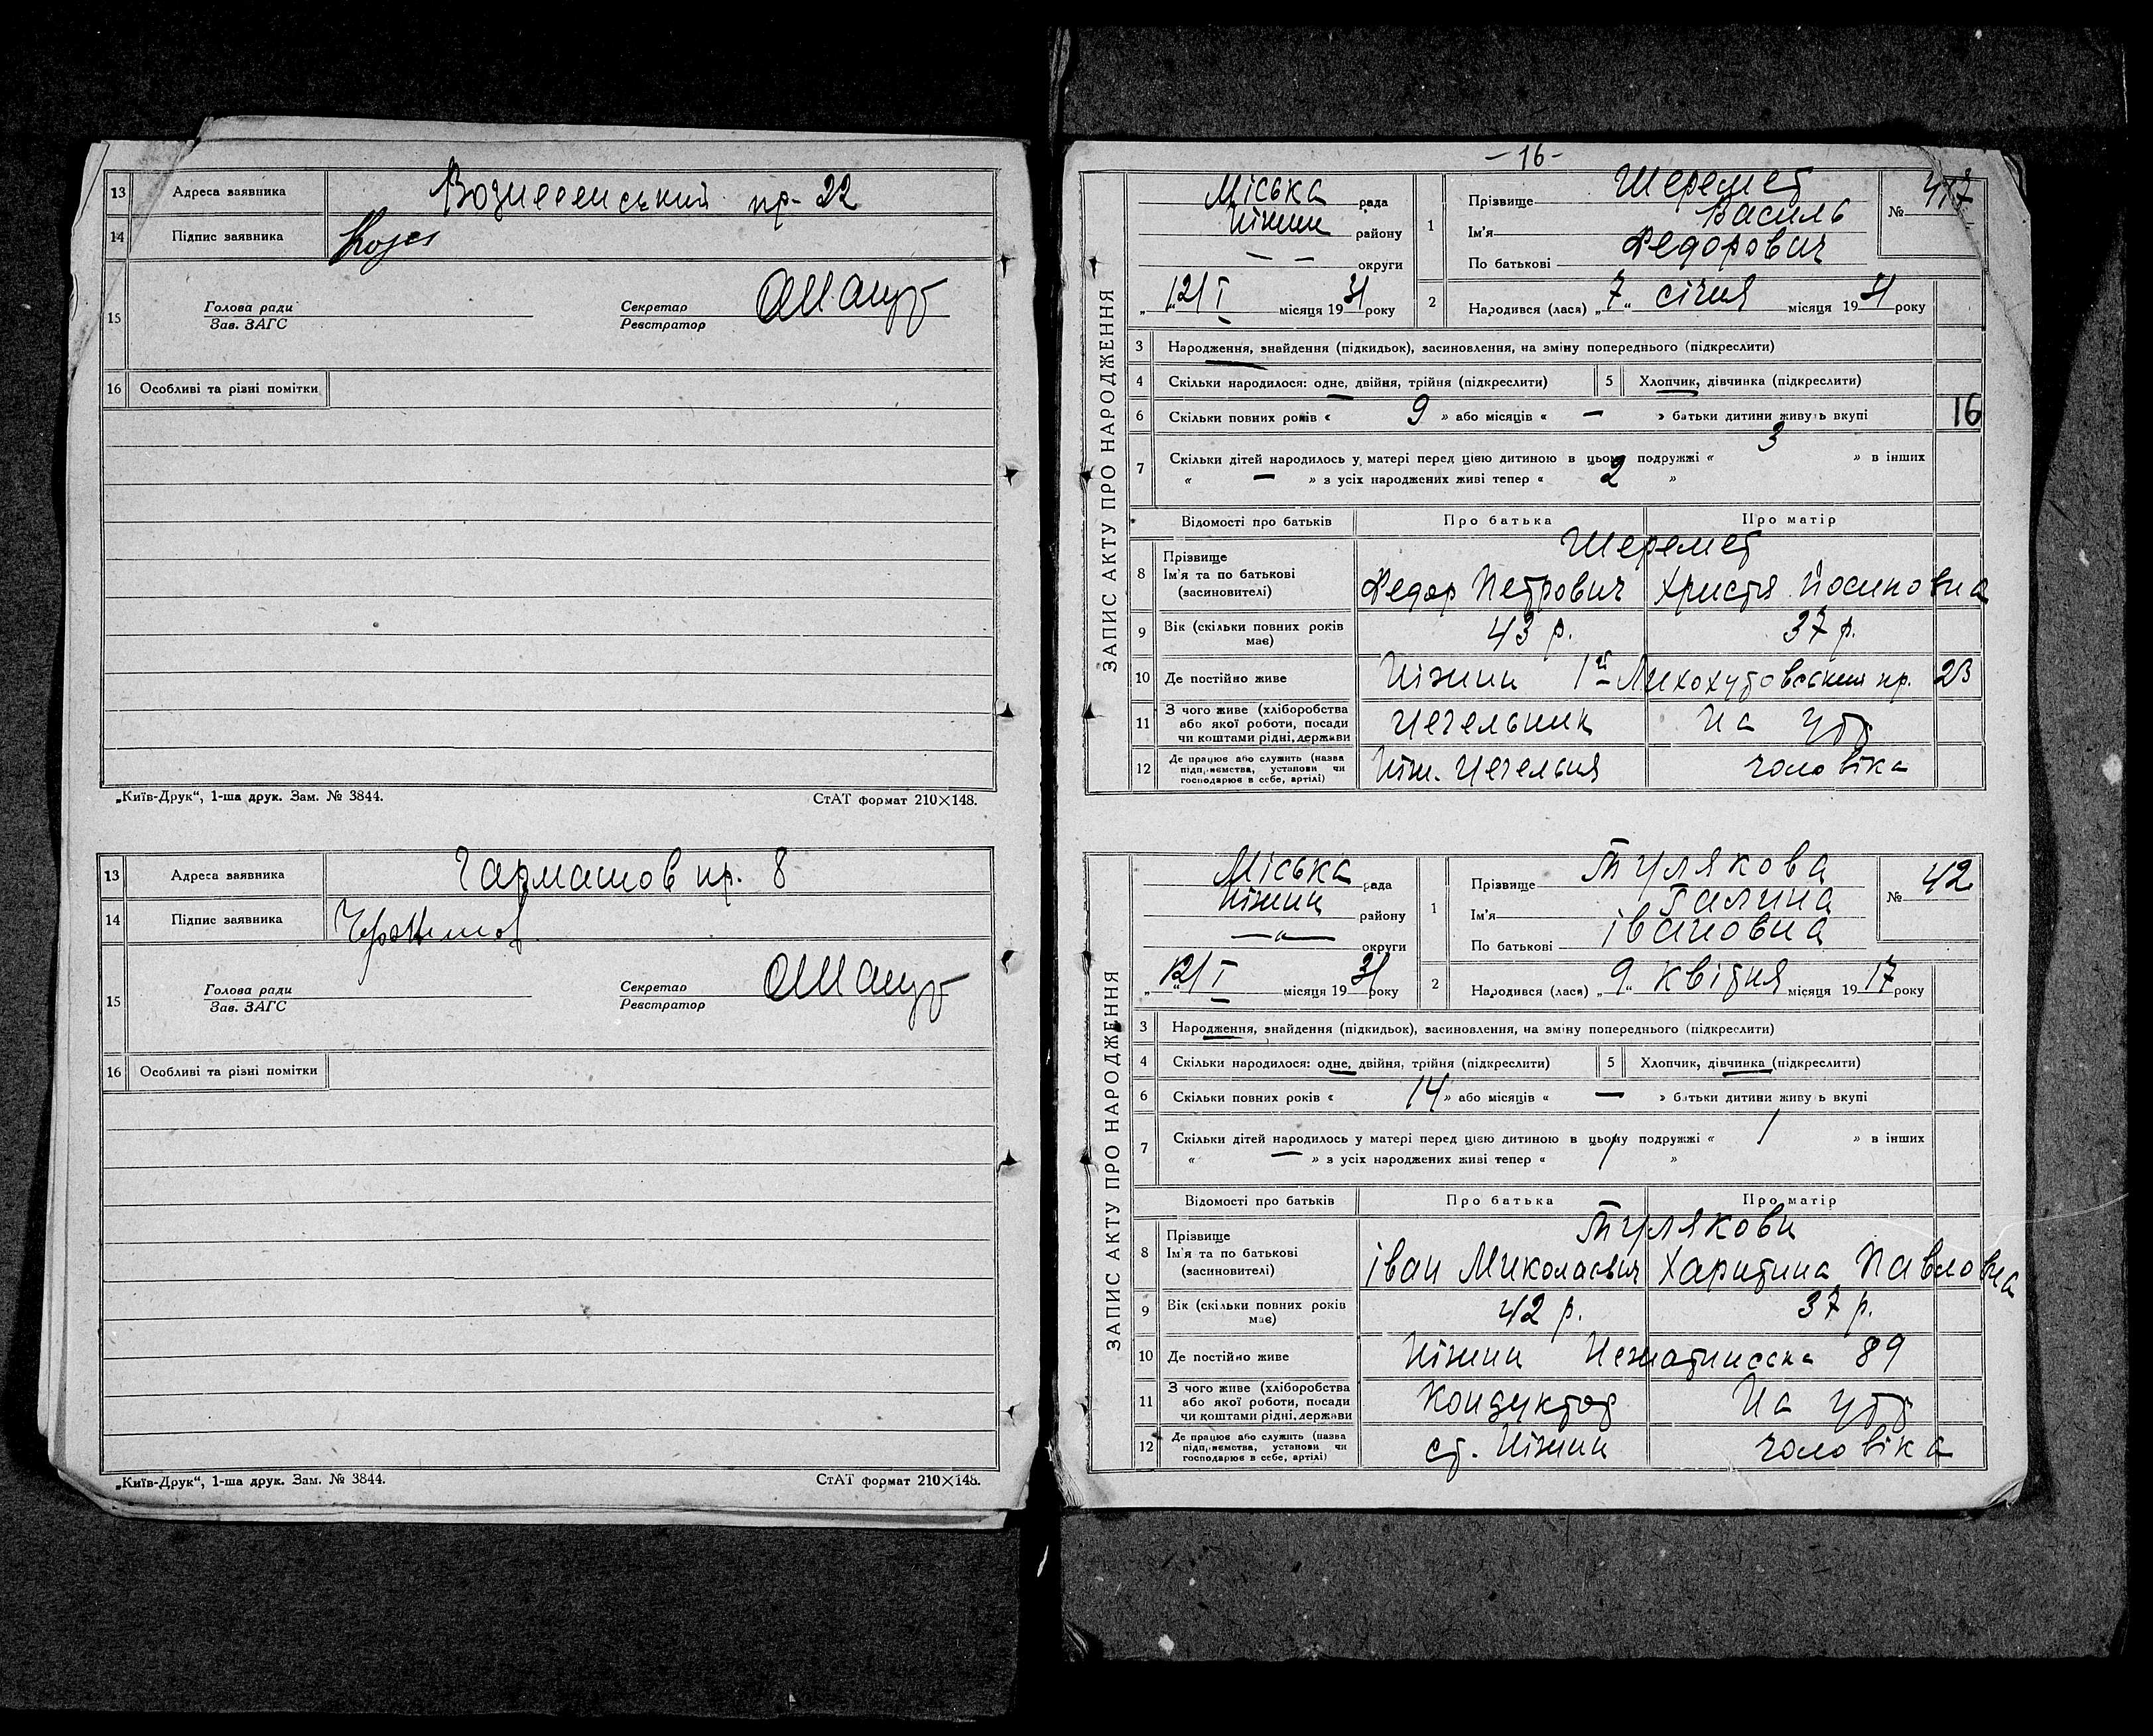 13 Адреса заявника Вознесенський пр. 22
14 Підпис заявника
15 Голова ради Секретар
Зав. ЗАГС Реєстратор
16 Особливі та різні помітки
„Київ-Друк“, 1-ша друк. Зам. № 3844. СтАТ формат 210×148.
13 Адреса заявника Гармашов пр. 8
14 Підпис заявника
15 Голова ради Секретар
Зав. ЗАГС Реєстратор
16 Особливі та різні помітки
„Київ-Друк“, 1-ша друк. Зам. № 3844. СтАТ формат 210×148.
-16-
ЗАПИС АКТУ ПРО НАРОДЖЕННЯ
Міська рада
Ніжин району
— — округи
„12/I місяця 1931 року
1 Прізвище Шеремет
Ім'я Василь
По батькові Федорович
№
2 Народився (лася) „7“ січня місяця 1931 року
3 Народження, знайдення (підкидьок), засиновлення, на зміну попереднього (підкреслити)
4 Скільки народилося: одне, двійня, трійня (підкреслити) 5 Хлопчик, дівчинка (підкреслити)
6 Скільки повних років « 9 » або місяців « — » батьки дитини живуть вкупі 16
7 Скільки дітей народилось у матері перед цією дитиною в цьому подружжі « 3 » в інших
« — » з усіх народжених живі тепер « 2 »
Відомості про батьків Про батька Про матір
8 Прізвище Шеремет
Ім'я та по батькові Федор Петрович Христя Йосиповна
(засиновителі)
9 Вік (скільки повних років має) 43 р. 37 р.
10 Де постійно живе Ніжин пр. 23
11 З чого живе (хліборобства Цегельник На утр.
або якої роботи, посади
чи коштами рідні, держави
12 Де працює або служить (назва Ніж. Цегельня чоловіка
підприємства, установи чи
господарює в себе, артілі)
ЗАПИС АКТУ ПРО НАРОДЖЕННЯ
Міська рада
Ніжин району
— — округи
„12/I місяця 1931 року
1 Прізвище Тулякова
Ім'я Галина
По батькові Івановна
№ 42
2 Народився (лася) „9“ квітня місяця 1917 року
3 Народження, знайдення (підкидьок), засиновлення, на зміну попереднього (підкреслити)
4 Скільки народилося: одне, двійня, трійня (підкреслити) 5 Хлопчик, дівчинка (підкреслити)
6 Скільки повних років « 14 » або місяців « — » батьки дитини живуть вкупі
7 Скільки дітей народилось у матері перед цією дитиною в цьому подружжі « 1 » в інших
« — » з усіх народжених живі тепер « 1 »
Відомості про батьків Про батька Про матір
8 Прізвище Тулякови
Ім'я та по батькові Іван Миколаєвич Харитина Павловна
(засиновителі)
9 Вік (скільки повних років має) 42 р. 37 р.
10 Де постійно живе Ніжин 89
11 З чого живе (хліборобства Кондуктор На утр.
або якої роботи, посади
чи коштами рідні, держави
12 Де працює або служить (назва ст. Ніжин чоловіка
підприємства, установи чи
господарює в себе, артілі)